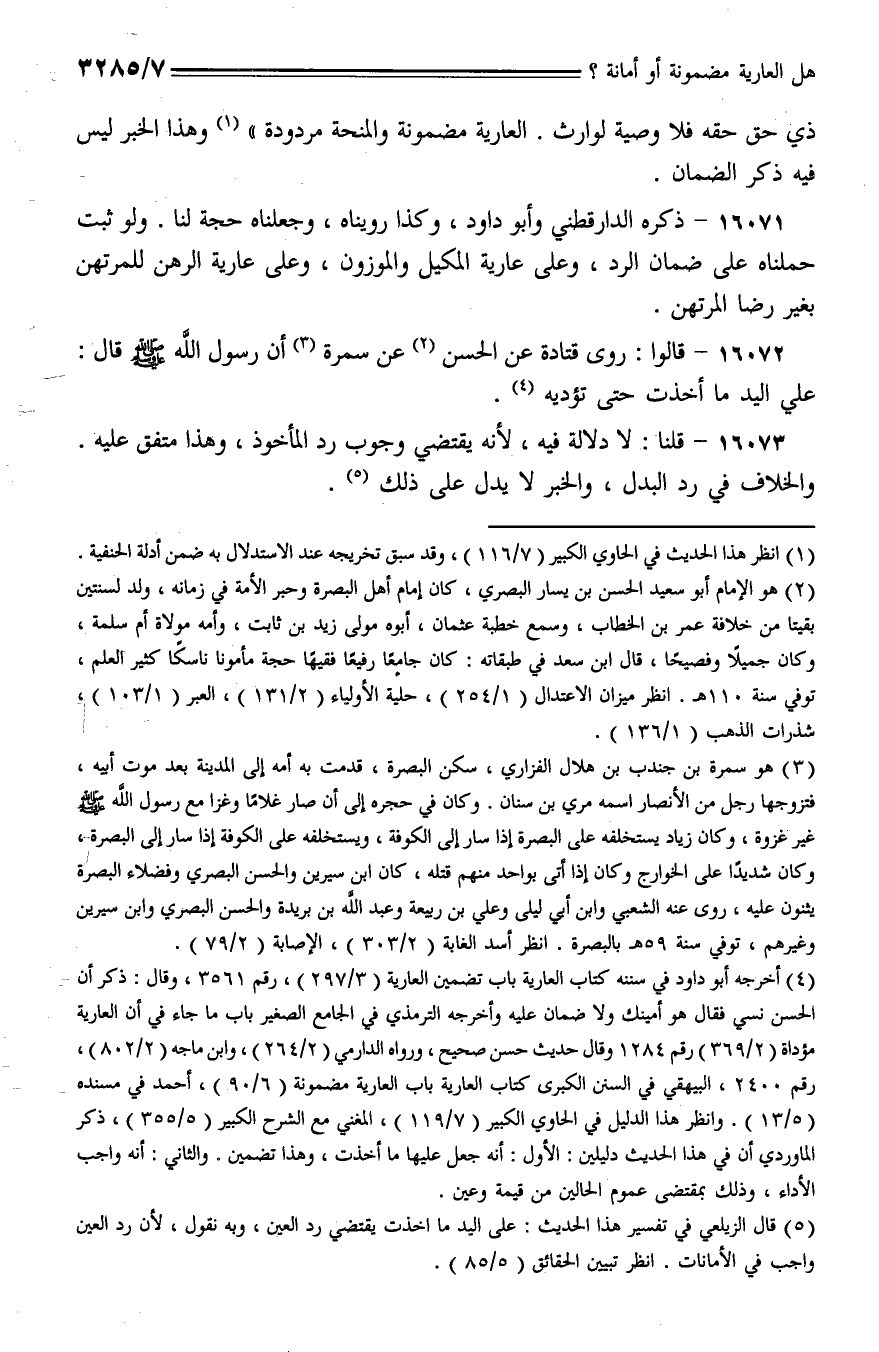 هل العارية مضمونة أو أمانة ؟ ٣٢٨٥/٧
ذي حق حقه فلا وصية لوارث . العارية مضمونة والمنحة مردودة » (١) وهذا الخبر ليس
فيه ذكر الضمان .
١٦٠٧١ – ذكره الدارقطني وأبو داود ، وكذا رويناه ، وجعلناه حجة لنا . ولو ثبت
حملناه على ضمان الرد ، وعلى عارية المكيل والموزون ، وعلى عارية الرهن للمرتهن
بغير رضا المرتهن .
١٦٠٧٢ – قالوا : روى قتادة عن الحسن (٢) عن سمرة (٣) أن رسول اللَّه ﷺ قال :
علي اليد ما أخذت حتى تؤديه (٤) .
١٦٠٧٣ – قلنا : لا دلالة فيه ، لأنه يقتضي وجوب رد المأخوذ ، وهذا متفق عليه .
والخلاف في رد البدل ، والخبر لا يدل على ذلك (٥) .
(١) انظر هذا الحديث في الحاوي الكبير ( ١١٦/٧ ) ، وقد سبق تخريجه عند الاستدلال به ضمن أدلة الحنفية .
(٢) هو الإمام أبو سعيد الحسن بن يسار البصري ، كان إمام أهل البصرة وحبر الأمة في زمانه ، ولد لسنتين
بقيتا من خلافة عمر بن الخطاب ، وسمع خطبة عثمان ، أبوه مولى زيد بن ثابت ، وأمه مولاة أم سلمة ،
وكان جميلًا وفصيحًا ، قال ابن سعد في طبقاته : كان جامعًا رفيعًا فقيهًا حجة مأمونا ناسكًا كثير العلم ،
توفي سنة ١١٠هـ . انظر ميزان الاعتدال ( ٢٥٤/١ ) ، حلية الأولياء ( ١٣١/٢ ) ، العبر ( ١٠٣/١ ) ،
شذرات الذهب ( ١٣٦/١ ) .
(٣) هو سمرة بن جندب بن هلال الفزاري ، سكن البصرة ، قدمت به أمه إلى المدينة بعد موت أبيه ،
فتزوجها رجل من الأنصار اسمه مري بن سنان . وكان في حجره إلى أن صار غلامًا وغزا مع رسول اللَّه ﷺ
غير غزوة ، وكان زياد يستخلفه على البصرة إذا سار إلى الكوفة ، ويستخلفه على الكوفة إذا سار إلى البصرة ،
وكان شديدًا على الخوارج وكان إذا أتى بواحد منهم قتله ، كان ابن سيرين والحسن البصري وفضلاء البصرة
يثنون عليه ، روى عنه الشعبي وابن أبي ليلى وعلي بن ربيعة وعبد اللَّه بن بريدة والحسن البصري وابن سيرين
وغيرهم ، توفي سنة ٥٩هـ بالبصرة . انظر أسد الغابة ( ٣٠٣/٢ ) ، الإصابة ( ٧٩/٢ ) .
(٤) أخرجه أبو داود في سننه كتاب العارية باب تضمين العارية ( ٢٩٧/٣ ) ، رقم ٣٥٦١ ، وقال : ذكر أن
الحسن نسي فقال هو أمينك ولا ضمان عليه وأخرجه الترمذي في الجامع الصغير باب ما جاء في أن العارية
مؤداة ( ٣٦٩/٢ ) رقم ١٢٨٤ وقال حديث حسن صحيح ، ورواه الدارمي ( ٢٦٤/٢ ) ، وابن ماجه ( ٨٠٢/٢ ) ،
رقم ٢٤٠٠ ، البيهقي في السنن الكبرى كتاب العارية باب العارية مضمونة ( ٩٠/٦ ) ، أحمد في مسنده
( ١٣/٥ ) . وانظر هذا الدليل في الحاوي الكبير ( ١١٩/٧ ) ، المغني مع الشرح الكبير ( ٣٥٥/٥ ) ، ذكر
الماوردي أن في هذا الحديث دليلين : الأول : أنه جعل عليها ما أخذت ، وهذا تضمين . والثاني : أنه واجب
الأداء ، وذلك بمقتضى عموم الحالين من قيمة وعين .
(٥) قال الزيلعي في تفسير هذا الحديث : على اليد ما اخذت يقتضي رد العين ، وبه نقول ، لأن رد العين
واجب في الأمانات . انظر تبيين الحقائق ( ٨٥/٥ ) .